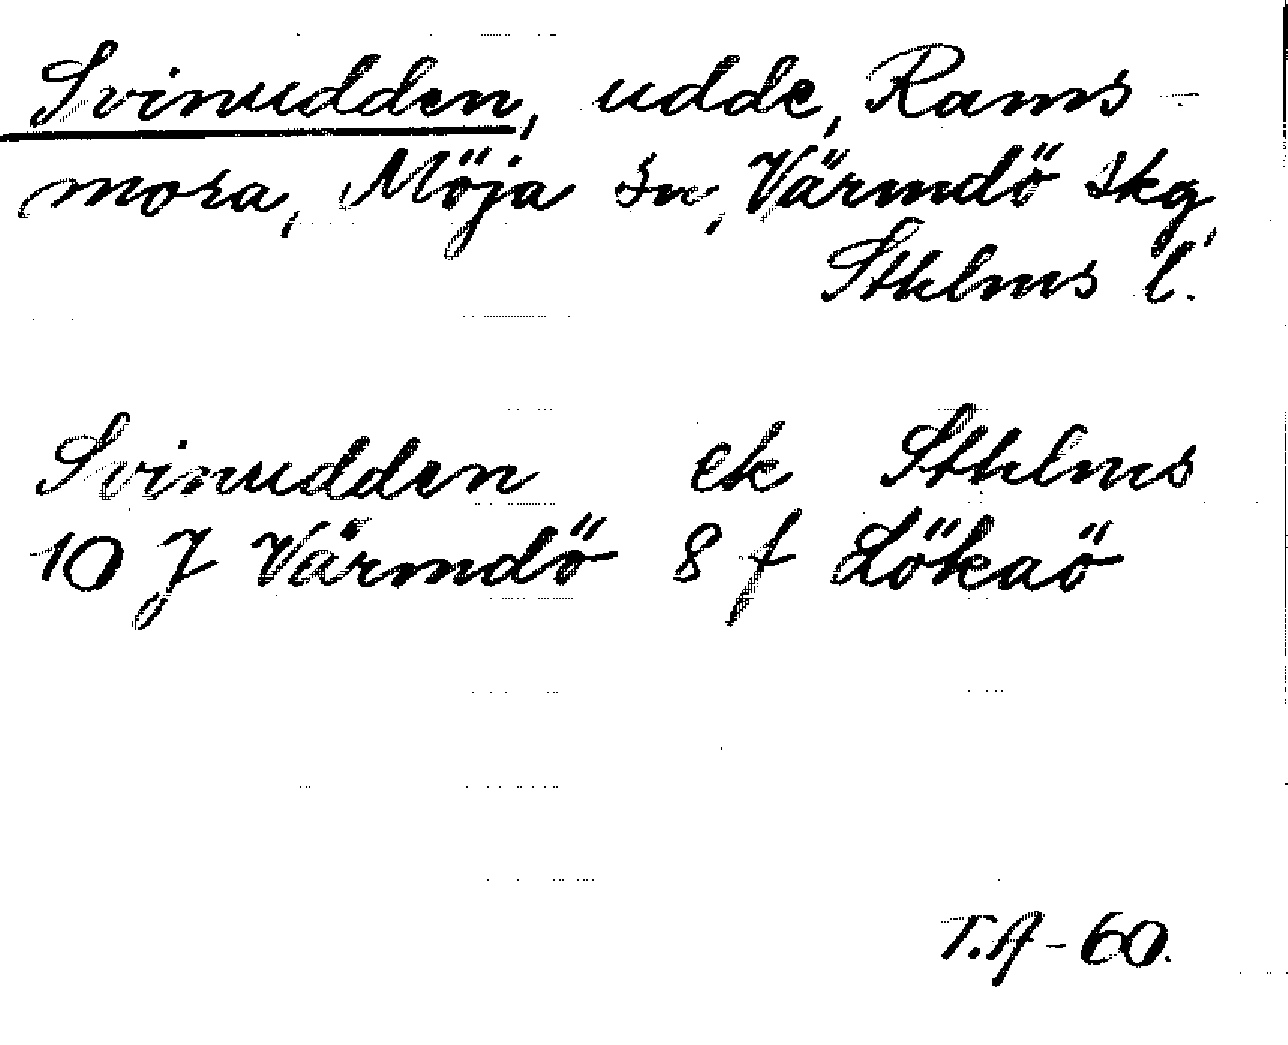 Svinudden, udde, Rams-
mora, Möja sn, Värmdö skg,
Sthlms l.
Svinudden ek Sthlms
10 J Värmdö 8 f Lökaö
T.A-60.